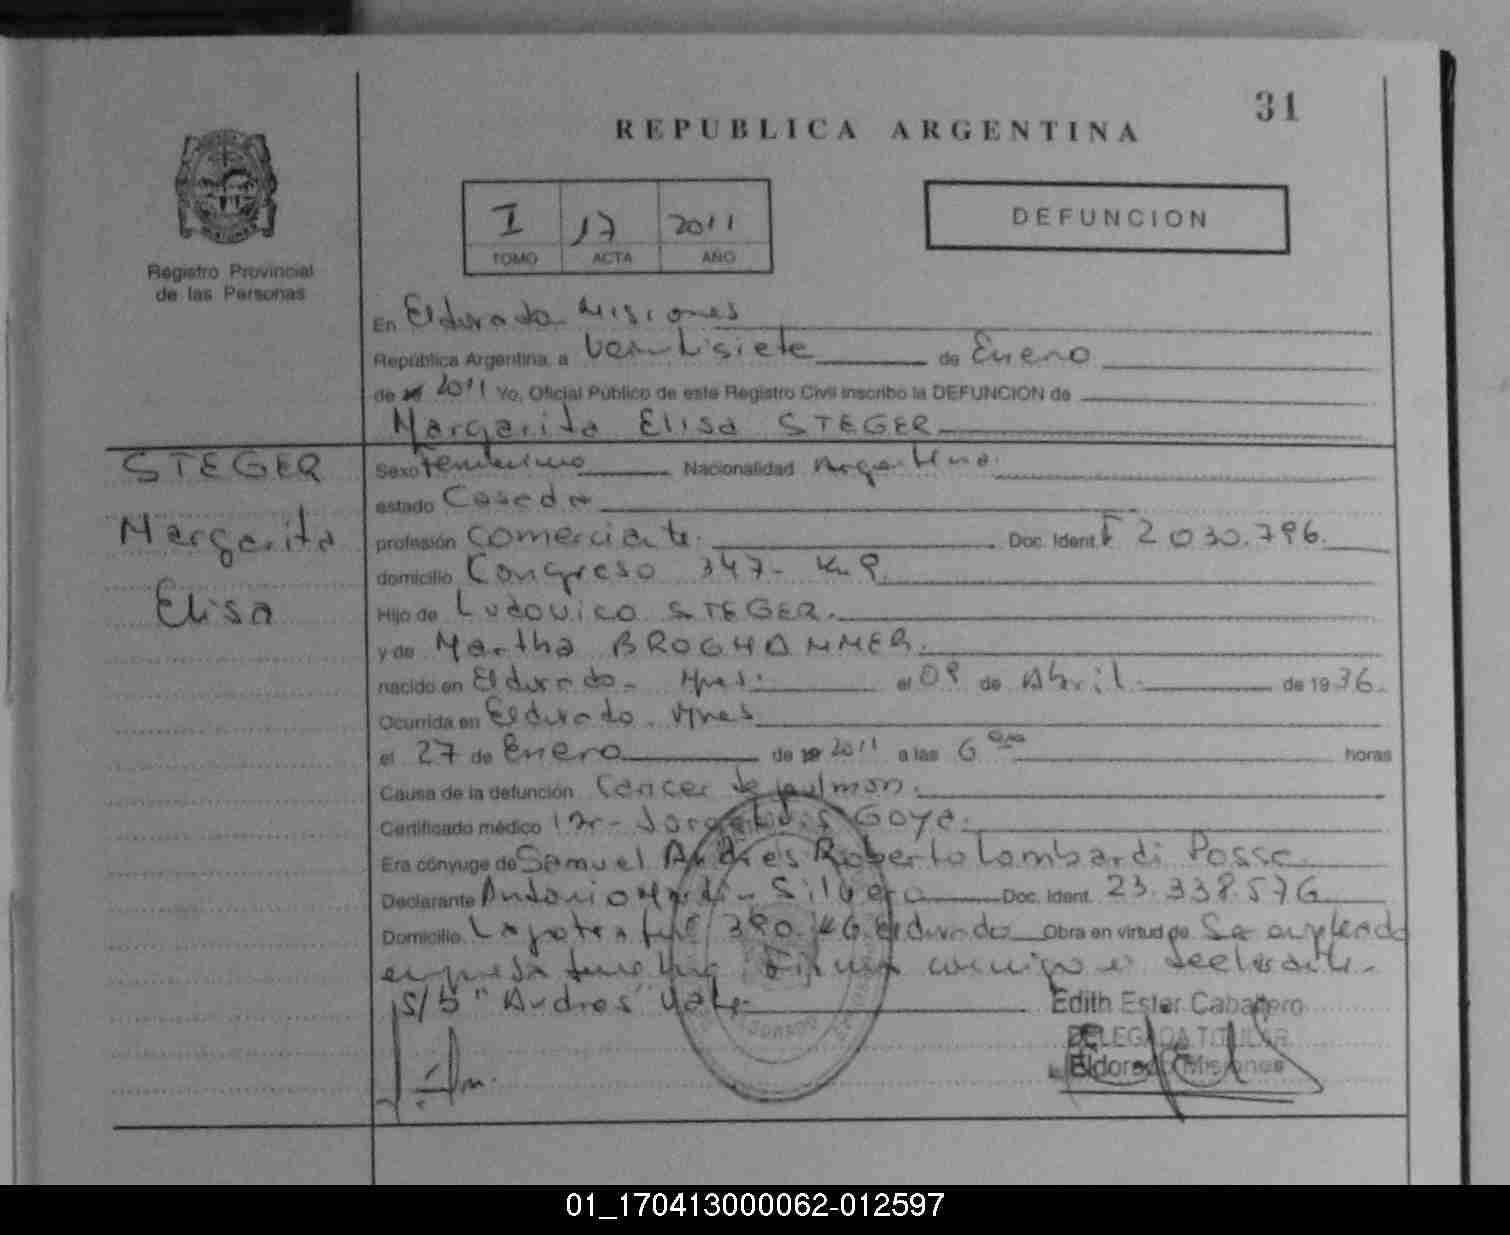 31
REPUBLICA ARGENTINA
I 17 2011
TOMO ACTA AÑO
DEFUNCION
Registro Provincial
de las Personas
En Eldorado Misiones
República Argentina, a Veintisiete de Enero
de 2011 Yo, Oficial Público de este Registro Civil inscribo la DEFUNCION de
Margarita Elisa STEGER
STEGER
Margarita
Elisa
Sexo Femenino Nacionalidad Argentina.
estado Casada
profesión Comerciante. Doc. Ident. F 2030.796.
domicilio Congreso 347- Km 9
Hijo de Ludovico STEGER.
y de Martha BROGHAMMER.
nacido en Eldorado - Mnes. el 09 de Abril de 1936.
Ocurrida en Eldorado. Mnes
el 27 de Enero de 2011 a las 6 horas
Causa de la defunción Cancer de pulmon.
Certificado médico Dr- Jorge Luis Goya.
Era cónyuge de Samuel Andres Roberto Lombardi Posse
Declarante Antonio Martin Silvera Doc. Ident. 23.338.576
Domicilio 390. K6 Eldorado Obra en virtud de Se empleado
empresa Firma conmigo el declarante.
S/b "Andres" Vale.
ELDORADO
Edith Ester Caballero
DELEGADA TITULAR
Eldorado Misiones
01_170413000062-012597